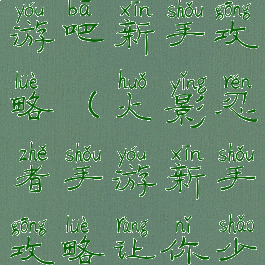 yóu bā xīn shǒu gōng
游吧新手攻
lüè huǒ yǐng rěn
略(火影忍
zhě shǒu yóu xīn shǒu
者手游新手
gōng lüè ràng nǐ shǎo
攻略让你少